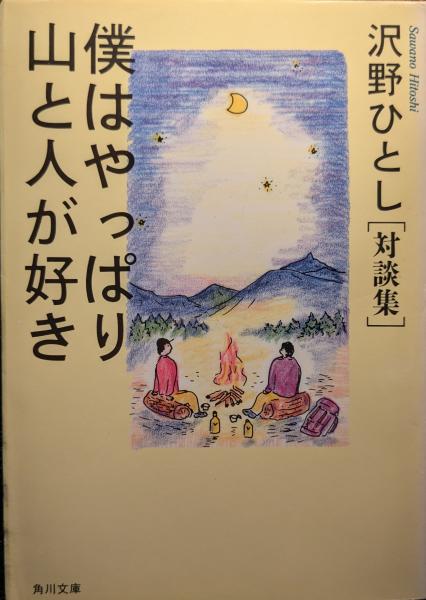 Sawano Hitoshi
沢野ひとし[対談集]
僕はやっぱり
山と人が好き
角川文庫